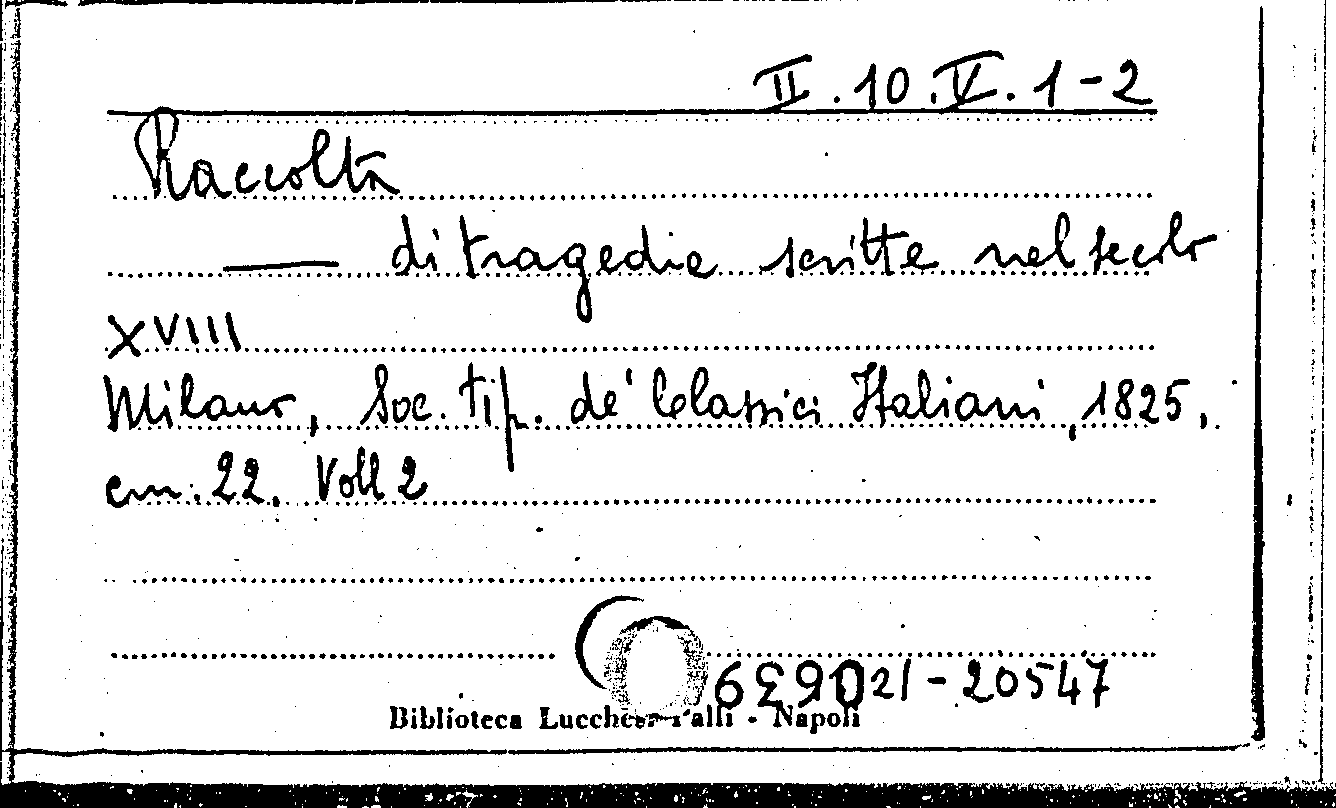 II.10.V.1-2
Raccolta
— di tragedie scritte nel secolo
XVIII
Milano, Soc. Tip. de' Classici Italiani, 1825,
cm. 22. Voll 2
21-20547
Biblioteca Lucchesi Palli - Napoli